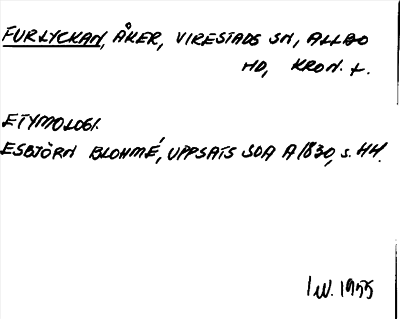 FURLYCKAN, ÅKER, VIRESTADS SN, ALLBO
HD, KRON. L.
ETYMOLOGI.
ESBJÖRN BLOHMÉ, UPPSATS SOA A 1830, s. 44.
1955